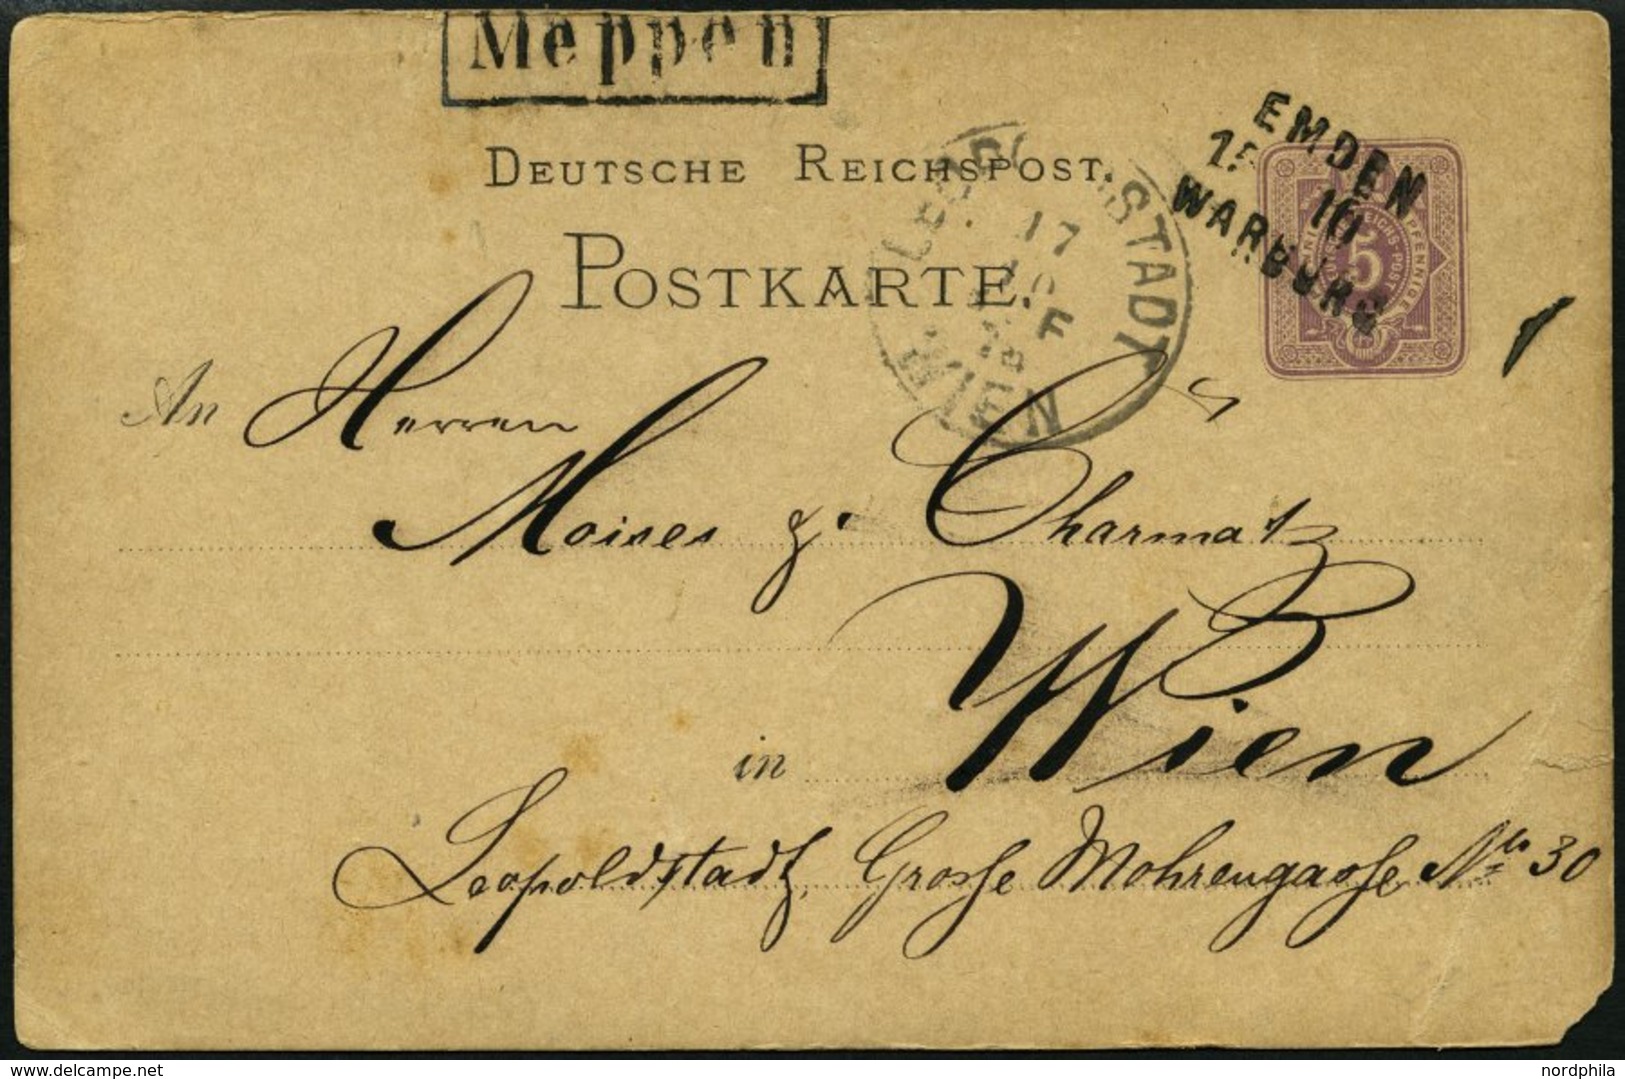 Meppen
DEUTSCHE REICHSPOST.
POSTKARTE.
EMDEN
10
WARBURG
5
17
WIEN
An Herren
Moises J. Charmatz
in Wien
Leopoldstadt, Grosse Mohrengasse No 30
www.delcampe.net
nordphila